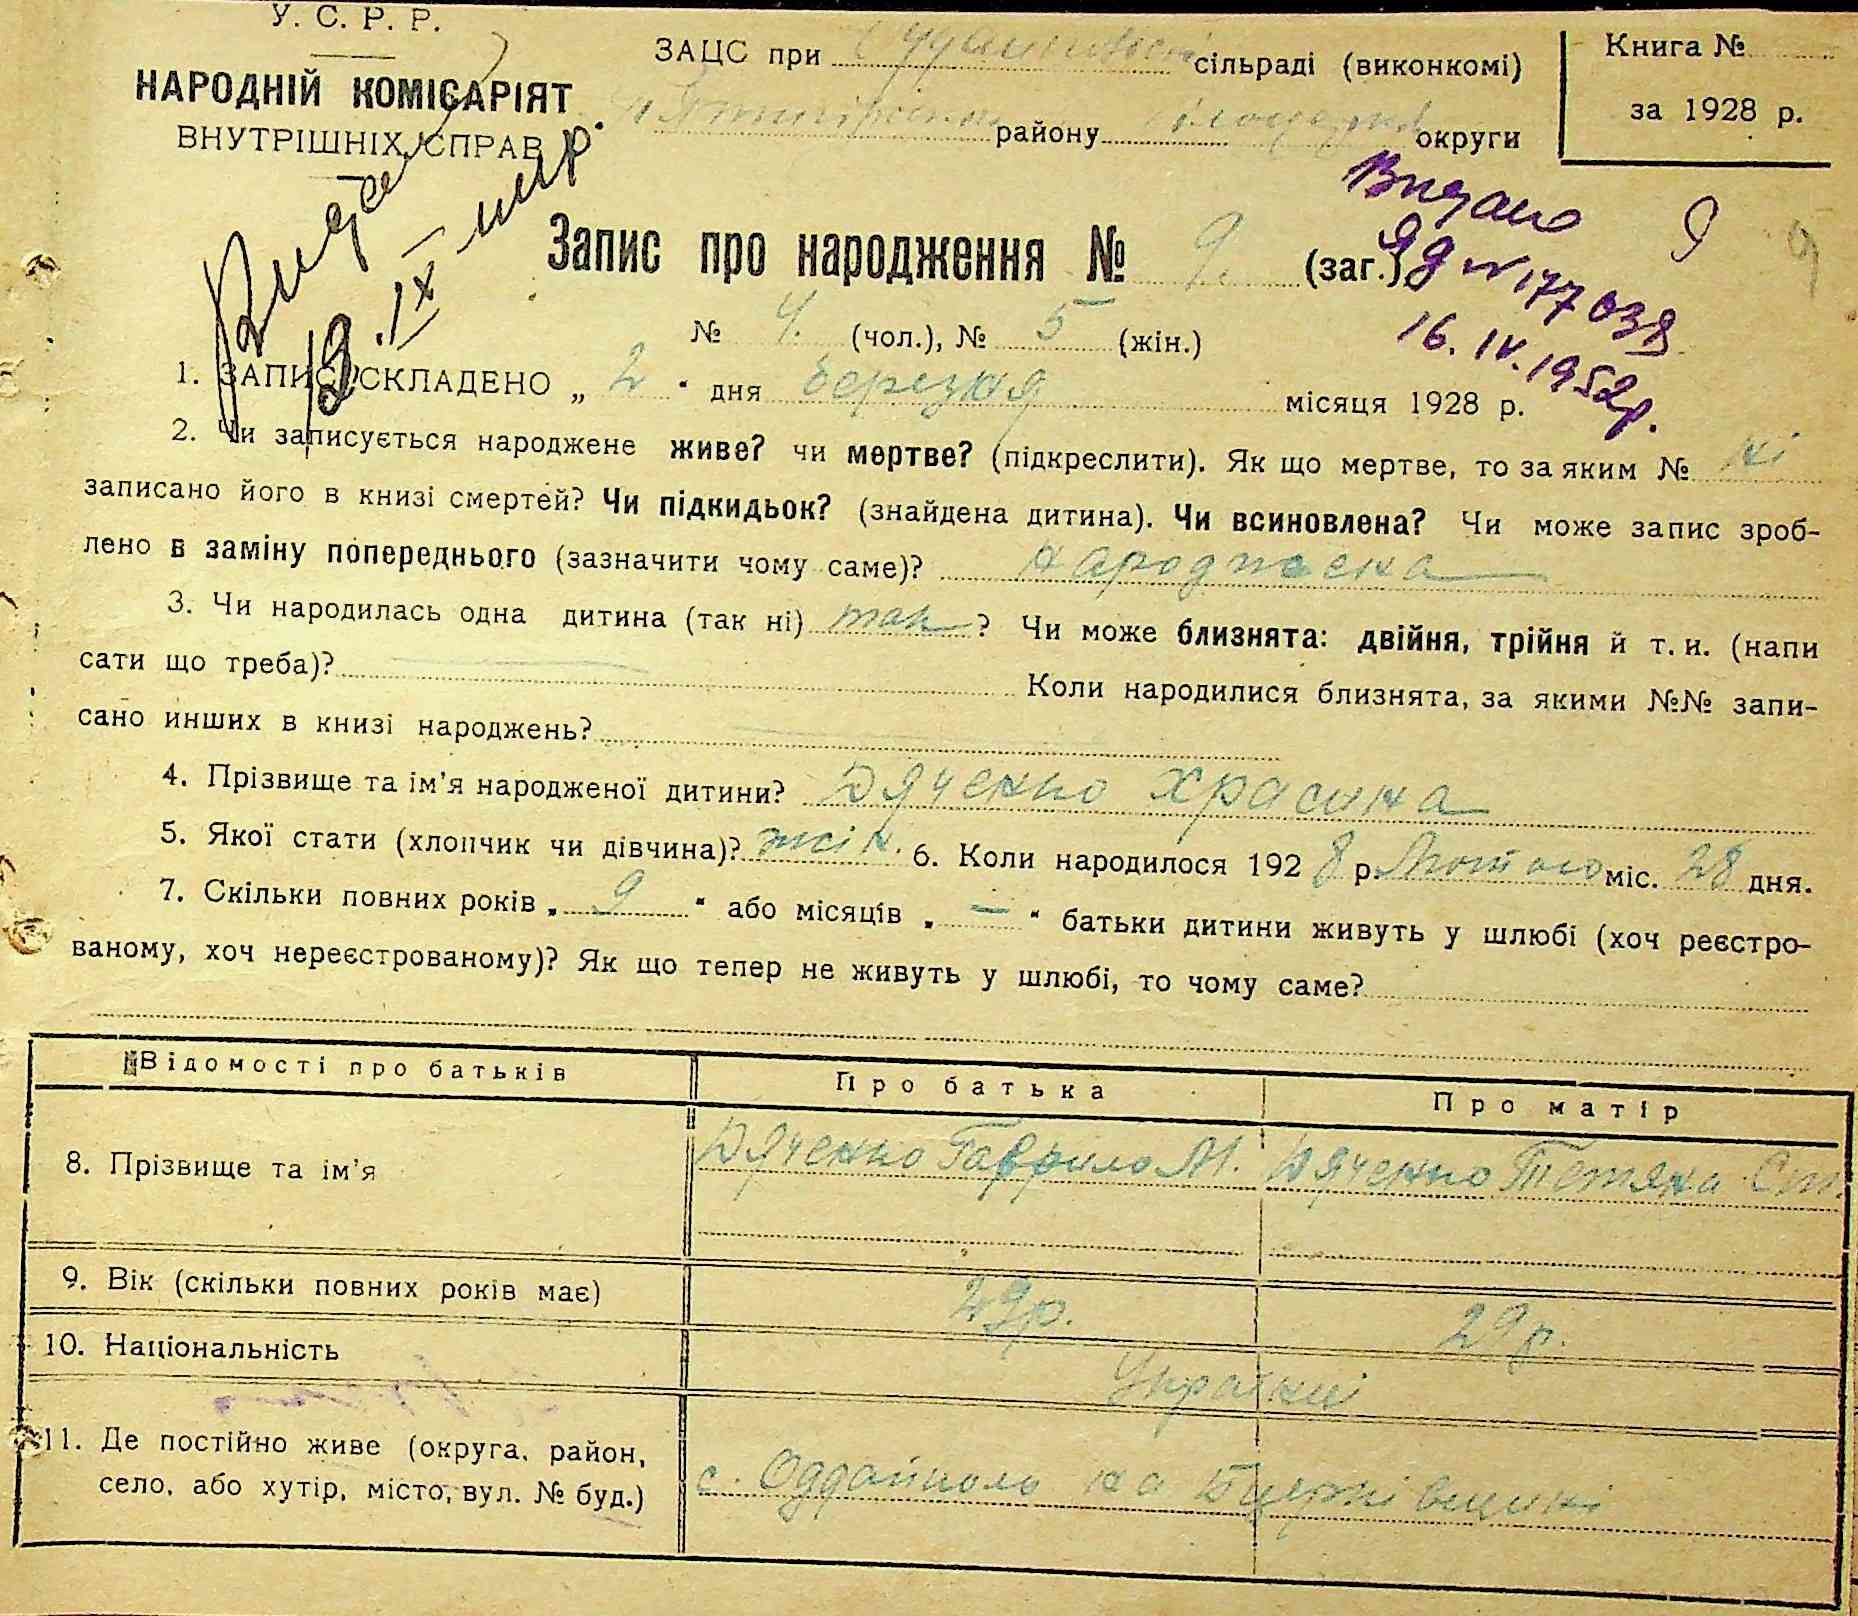 У. С. Р. Р.
НАРОДНІЙ КОМІСАРІЯТ
ВНУТРІШНІХ СПРАВ
ЗАЦС при сільраді (виконкомі)
району округи
Книга №
за 1928 р.
Видано
ЯЯ № 177038
16. IV. 1952р.
9
9
19. IX
Запис про народження № 9. (заг.)
№ 4. (чол.), № 5 (жін.)
1. ЗАПИС СКЛАДЕНО „ 2 “ дня березня місяця 1928 р.
2. Чи записується народжене живе? чи мертве? (підкреслити). Як що мертве, то за яким № ні
записано його в книзі смертей? Чи підкидьок? (знайдена дитина). Чи всиновлена? Чи може запис зроб-
лено в заміну попереднього (зазначити чому саме)? народжена
3. Чи народилась одна дитина (так ні) так ? Чи може близнята: двійня, трійня й т. и. (напи
сати що треба)? Коли народилися близнята, за якими №№ запи-
сано инших в книзі народжень?
4. Прізвище та ім’я народженої дитини? Дяченко Храсина
5. Якої стати (хлопчик чи дівчина)? жін. 6. Коли народилося 1928 р. Лютого міс. 28 дня.
7. Скільки повних років „ 9 “ або місяців „ — “ батьки дитини живуть у шлюбі (хоч реєстро-
ваному, хоч нереєстрованому)? Як що тепер не живуть у шлюбі, то чому саме?
Відомості про батьків Про батька Про матір
8. Прізвище та ім’я Дяченко Гаврило М. Дяченко Тетяна Ст.
9. Вік (скільки повних років має) 29р. 29р.
10. Національність Українці
11. Де постійно живе (округа, район, село, або хутір, місто, вул. № буд.) с. Оддайполе на